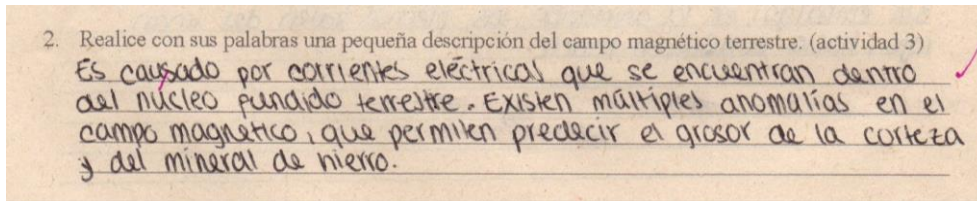 2. Realice con sus palabras una pequeña descripción del campo magnético terrestre. (actividad 3)
Es causado por corrientes eléctricas que se encuentran dentro
del núcleo fundido terrestre. Existen múltiples anomalías en el
campo magnético, que permiten predecir el grosor de la corteza
y del mineral de hierro.